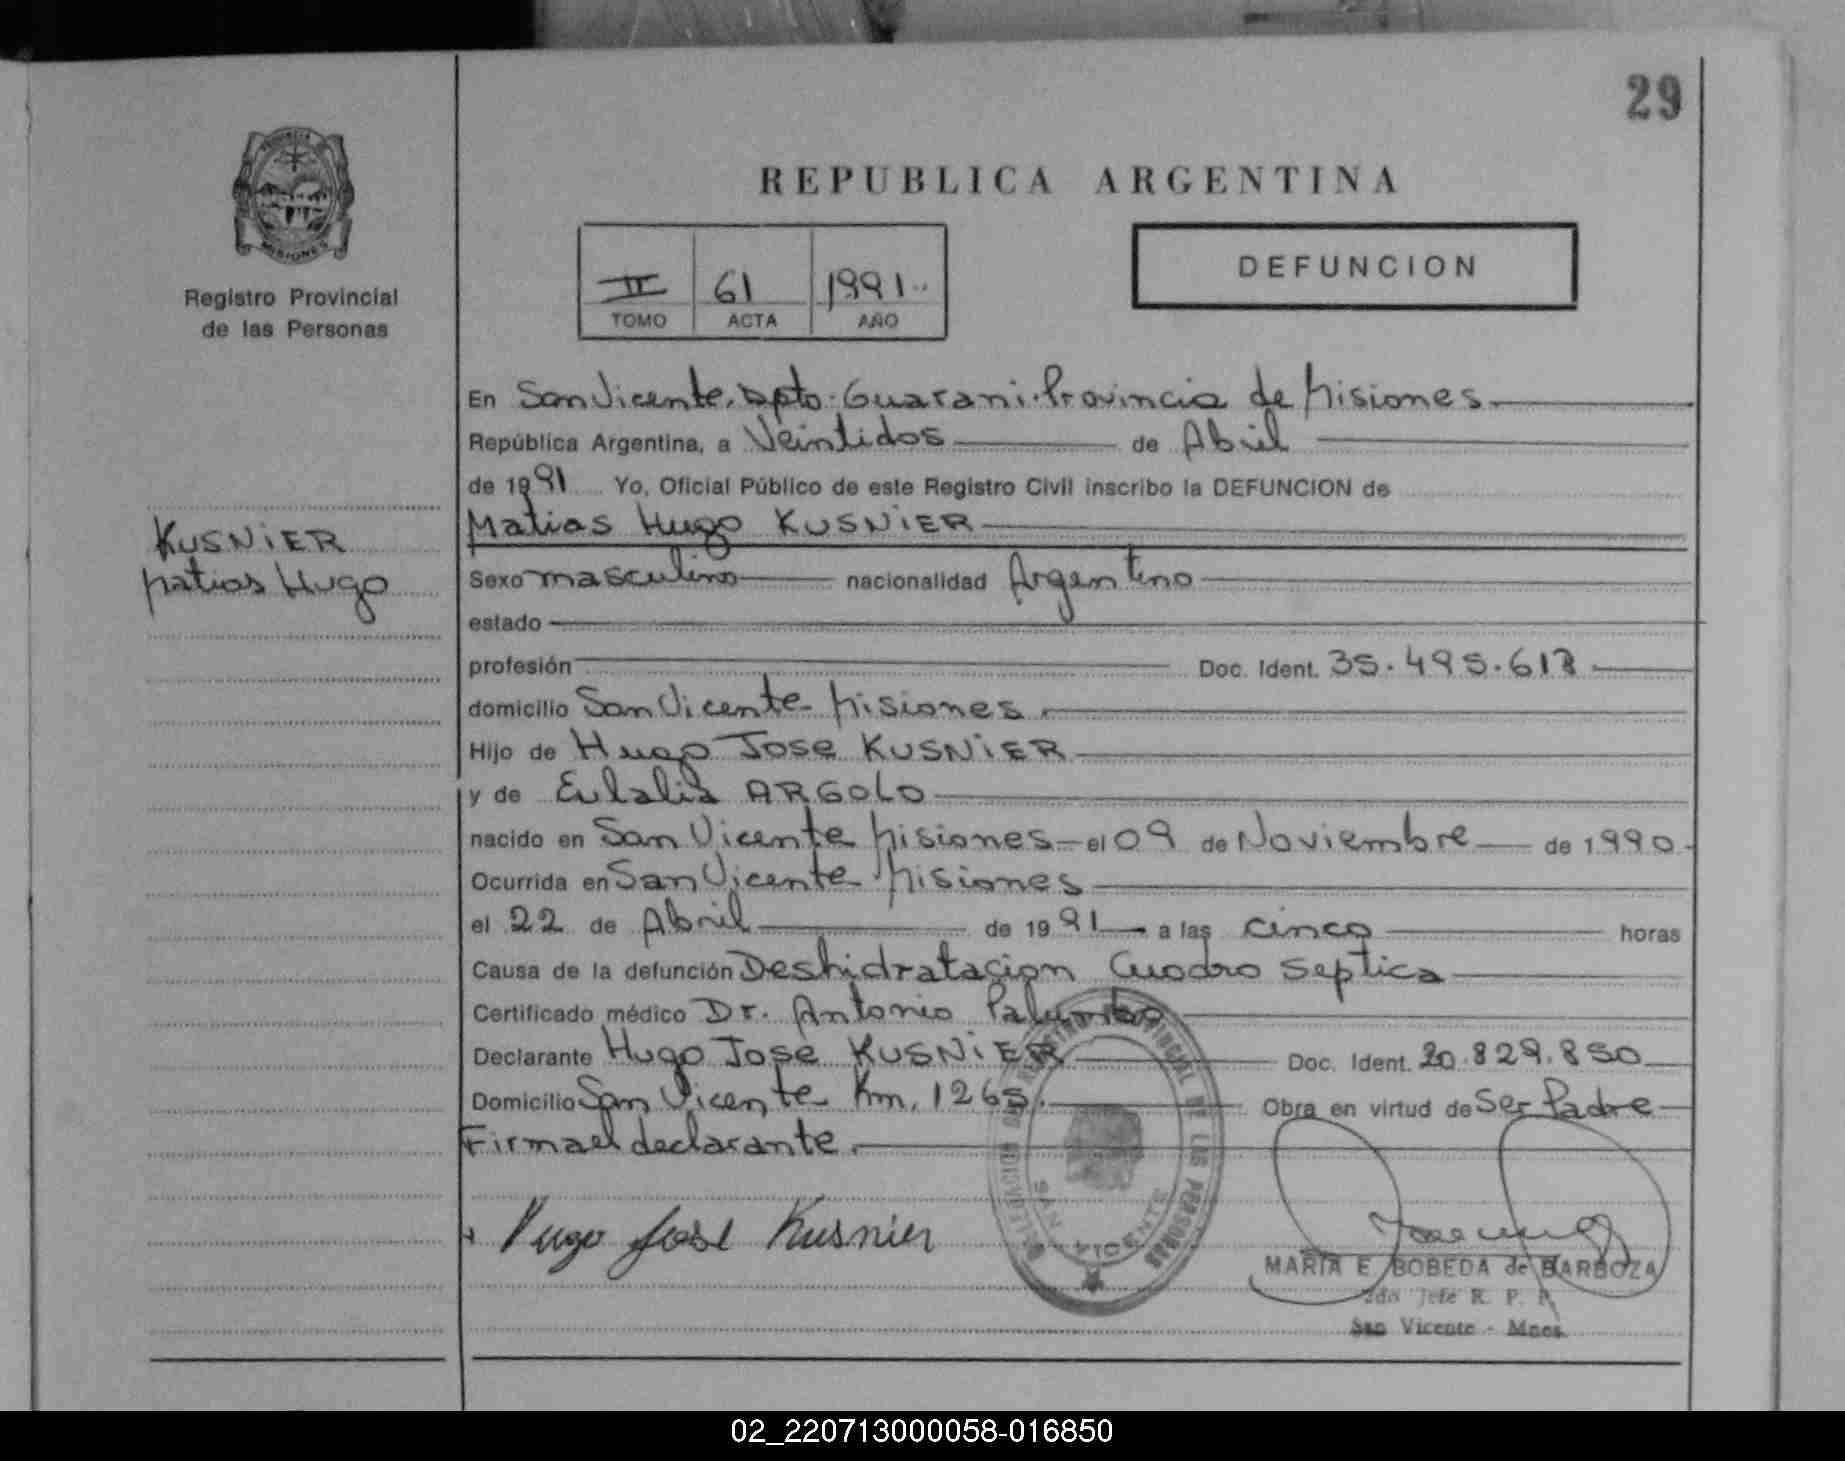 29
PROVINCIA DE
MISIONES
Registro Provincial
de las Personas
REPUBLICA ARGENTINA
II 61 1991
TOMO ACTA AÑO
DEFUNCION
En San Vicente. Dpto. Guarani. Provincia de Misiones.
República Argentina, a Veintidos de Abril
de 1991 Yo, Oficial Público de este Registro Civil inscribo la DEFUNCION de
Matias Hugo KUSNiER
KUSNiER
Matias Hugo
Sexo masculino nacionalidad Argentino
estado
profesión Doc. Ident. 35.495.618
domicilio San Vicente Misiones.
Hijo de Hugo Jose KUSNiER
y de Eulalia ARGOLO
nacido en San Vicente Misiones el 09 de Noviembre de 1990
Ocurrida en San Vicente Misiones
el 22 de Abril de 1991 a las cinco horas
Causa de la defunción Deshidratacion Cuadro septica
Certificado médico Dr. Antonio Palumbo
Declarante Hugo Jose KUSNiER Doc. Ident. 20.829.850
Domicilio San Vicente Km. 1265. Obra en virtud de Ser Padre
Firma el declarante.
Hugo José Kusnier
DELEGACION DEL REGISTRO PROVINCIAL DE LAS PERSONAS
SAN VICENTE
MARIA E. BOBEDA de BARBOZA
2do Jefe R. P. P.
San Vicente - Mnes.
02_220713000058-016850